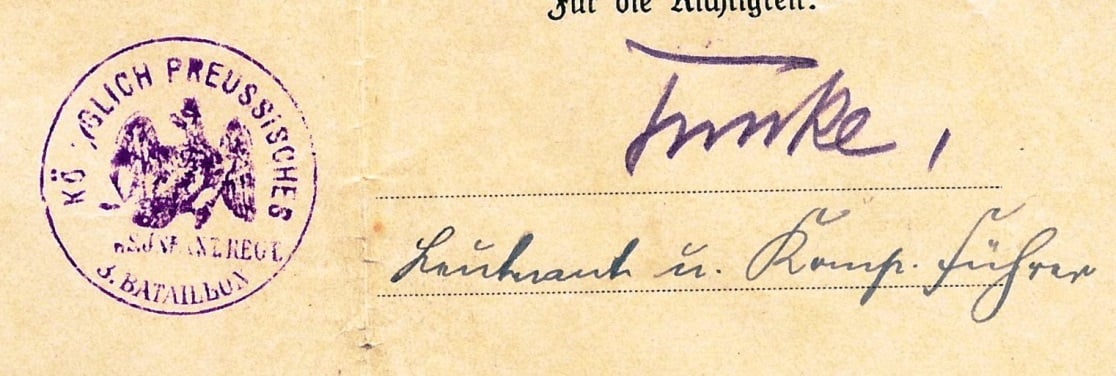 Für die Richtigkeit:
KÖNIGLICH PREUSSISCHES
INFANT. REGT.
3. BATAILLON
Funke,
Leutnant u. Komp. Führer